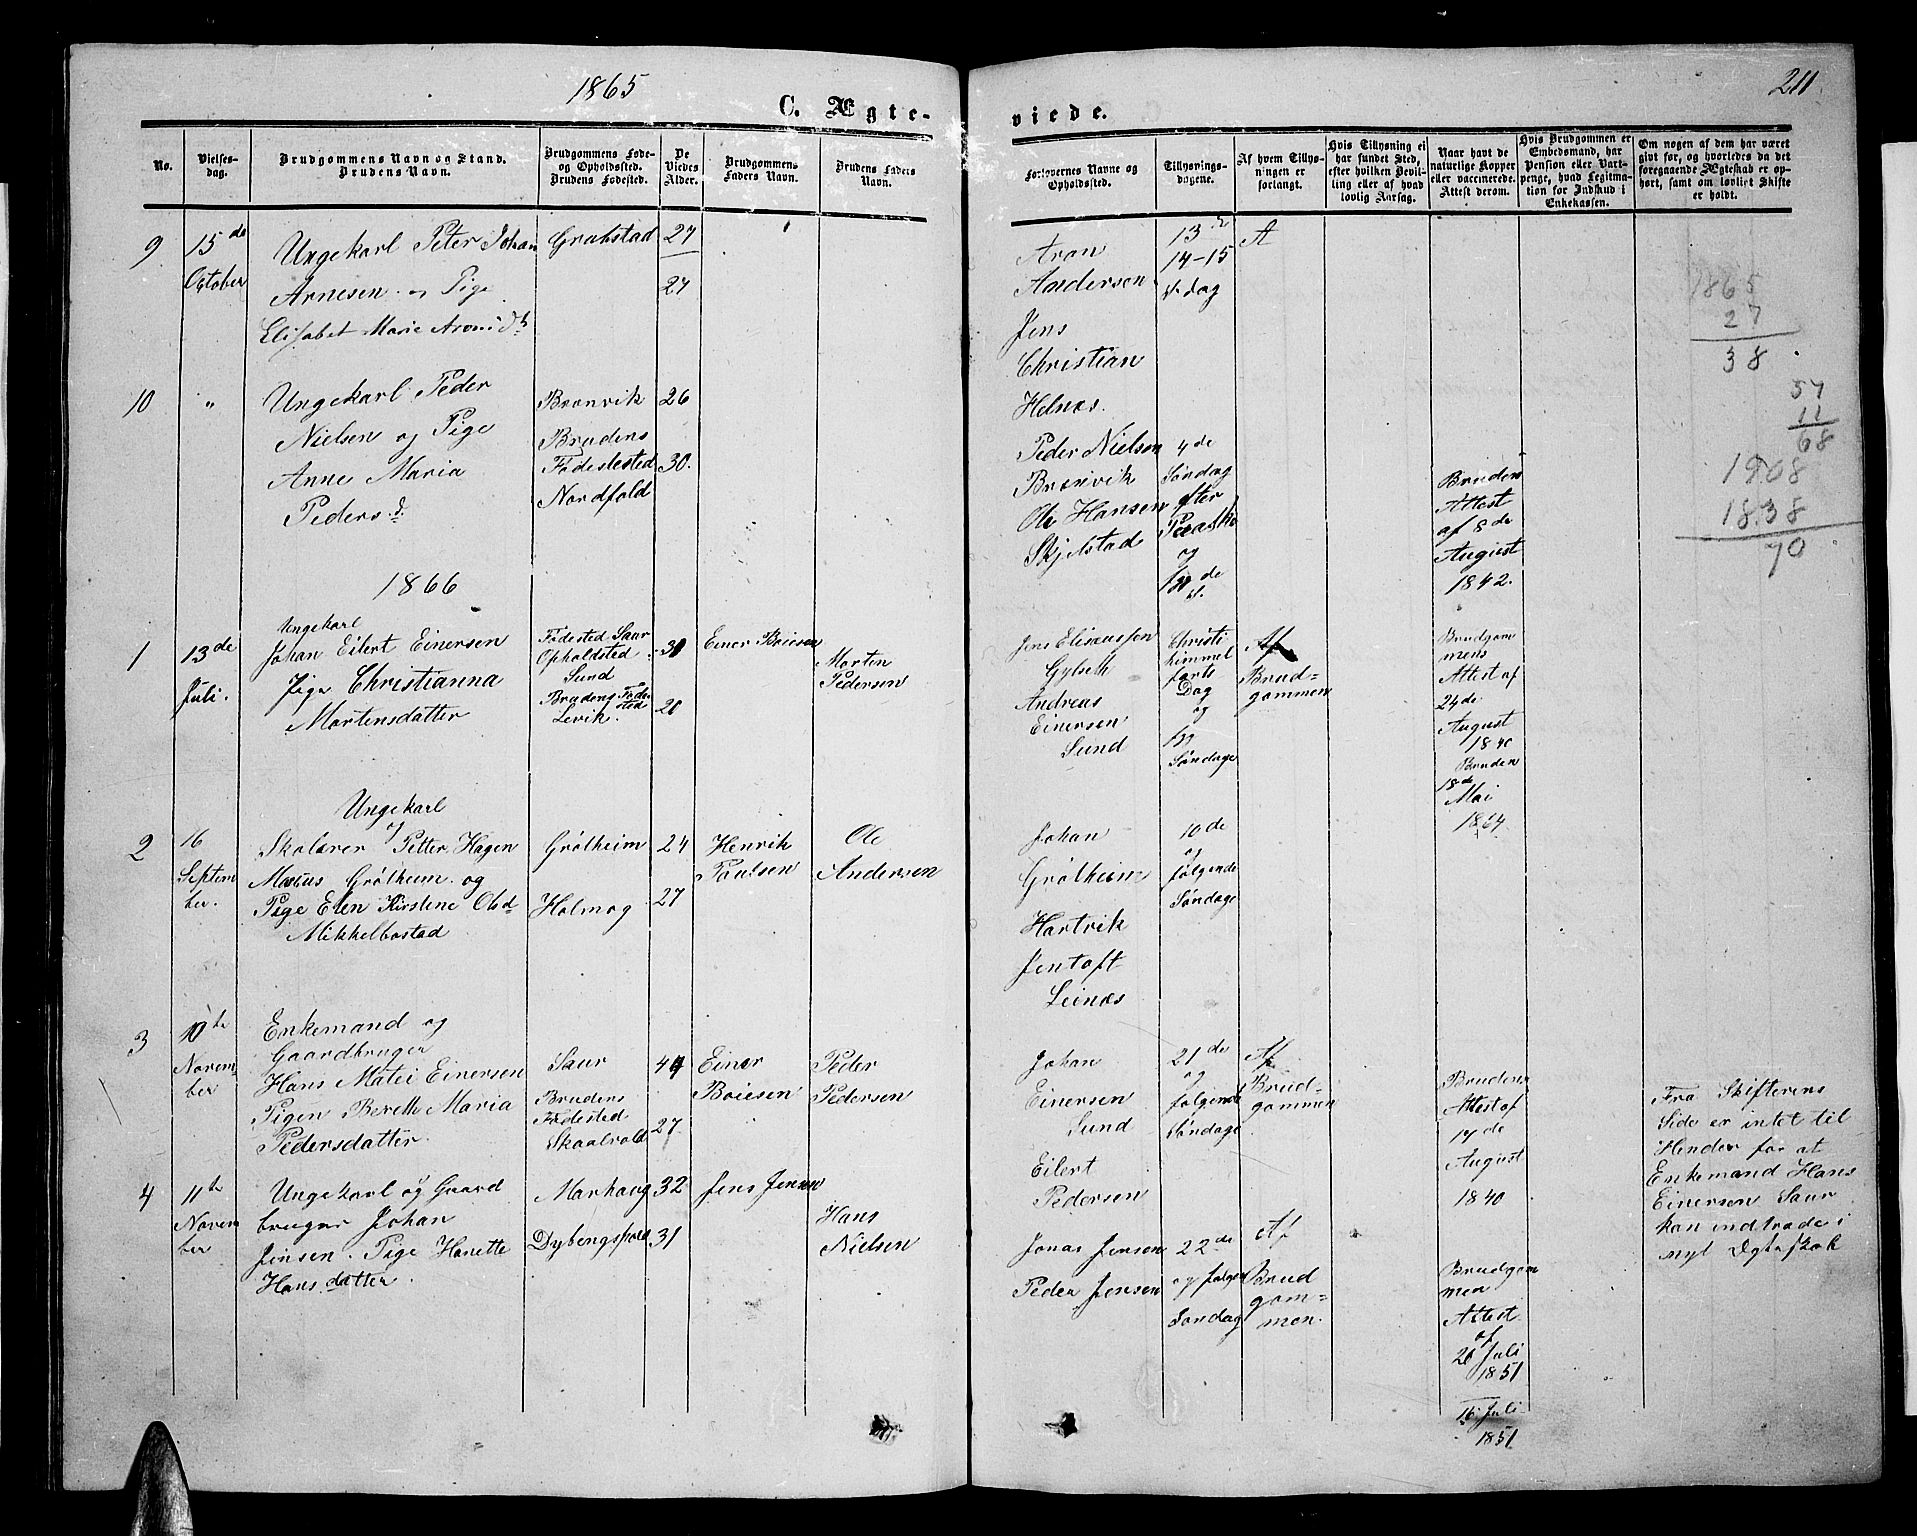 1865
211
C. Ægte-
viede.
No.
Vielses-
dag.
Brudgommens Navn og Stand.
Brudens Navn.
Brudgommens Føde-
og Opholdssted.
Brudens Fødested.
De
Viedes
Alder.
Brudgommens
Faders Navn.
Brudens Faders
Navn.
Forlovernes Navne og
Opholdssted.
Tillysnings-
dagene.
Af hvem Tillys-
ningen er
forlangt.
Hvis Tillysning ei
har fundet Sted,
efter hvilken Bevil-
ling eller af hvad
lovlig Aarsag.
Naar havt de
naturlige Kopper
eller vaccinerede.
Attest derom.
Hvis Brudgommen er
Embedsmand, har
Pension eller Vart-
penge, hvad Legitima-
tion for Indskud i
Enkekassen.
Om nogen af dem har været
gift før, og hvorledes da det
foregaaende Ægteskab er op-
hørt, samt om lovligt Skifte
er holdt.
9
15 de
October
Ungekarl Peter Johan
Arnesen og Pige
Elisabet Marie Aronsdt
27
27
Aron
Andersen
Jens
Christian
Helnæs.
13
14-15
S. dag
A
1865
27
38
57
11
68
1908
1838
70
10
"
Ungekarl Peder
Nielsen og Pige
Anne Maria
Peders d.
Brønvik
Brudens
Fødested
Nordfold
26
30.
Peder Nielsen
Brønvik
Ole Hansen
Skjelstad
4 de
Søndag
efter
Paaske
og
Bruden
Attest
af 8 de
August
1842.
1866
1
13 de
Juli.
Ungekarl
Johan Eilert Einersen
Pige Christianna
Mortensdatter
Fødested Saur
Opholdsted
Sund
Brudens Føde-
sted
Levik.
30
20
Einer Boiesen
Morten
Pedersen
Jens Eliseussen
Gylseth
Andreas
Einersen
Sund
Christi
himmel
farts
Dag
og
Søndage
Af
Brud-
gommen
Brudgom
mens
Attest af
24de
August
1840
Bruden
18de
Mai
1864
2
16
Septem
ber.
Ungekarl
Skolærer Petter Hagen
Marius Grôtheim og
Pige Elen Kirstine Olsd
Mikkelbostad
Grôtheim
Holmøg
24
27
Henrik
Poulsen
Ole
Andersen
Johan
Grôtheim
Hartvik
Jentoft
Leinæs
10 de
og
følgende
Søndage
3
10 te
Novem-
ber
Enkemand og
Gaardbruger
Hans Matei Einersen
Pigen Bereth Maria
Pedersdatter.
Saur
Brudens
Fødested
Skaalvold
44
27
Einer
Boiesen
Peder
Pedersen
Johan
Einersen
Sund
Eilert
Pedersen
21 de
og
følgende
Søndage
Af
Brud-
gommen
Brudens
Attest af
14 de
August
1840
Fra Skifterens
Side er intet til
Hinder for at
Enkemand Hans
Einersen Saur
kan indtræde i
nyt Ægteskab
4
11 te
Novem
ber
Ungekarl og Gaard
bruger Johan
Jensen. Pige Hanette
Hans datter.
Marhaug
32
31
Jens Jensen
Hans
Nielsen
Jonas Jensen
Peder Jensen
22 de
og følgen
Søndag
Af
Brud
gom=
men.
Brudgom
men
Attest
af
21 Juli
1851
16 Juli
1851